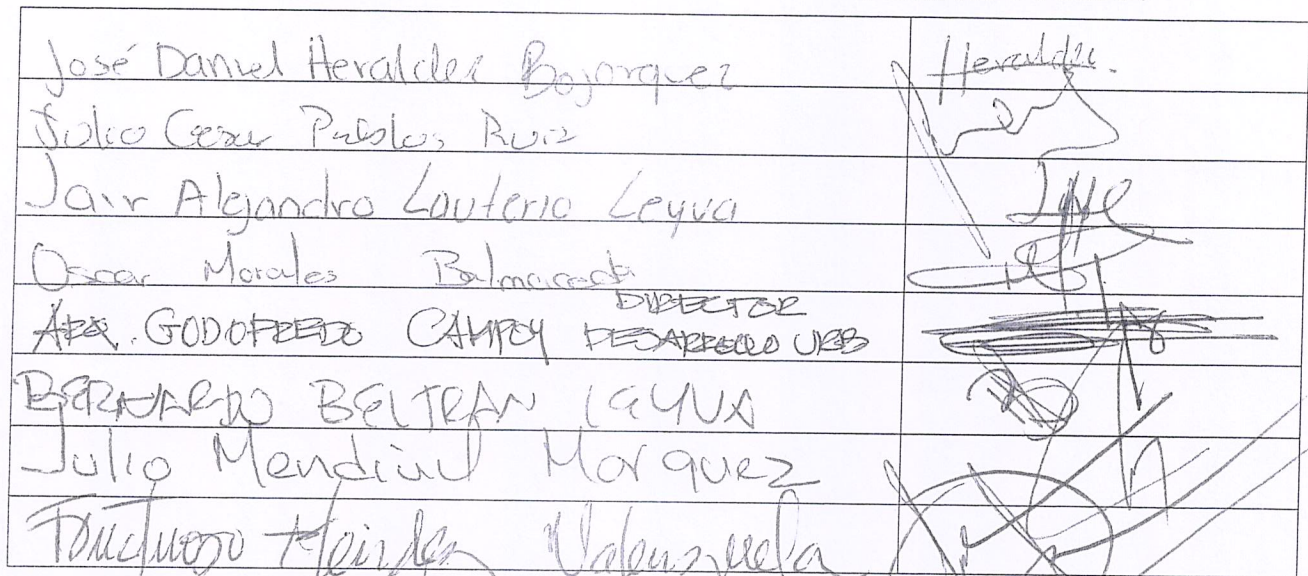 José Daniel Heraldez Bojorquez Heraldez.
Julio Cesar Pablos Ruiz
Jair Alejandro Lauterio Leyva
Oscar Morales Balmaceda
ARQ. GODOFREDO CAMPOY DIRECTOR DESARROLLO URB
BERNARDO BELTRAN LEYVA
Julio Mendivil Morquez
Fructuoso Méndez Valenzuela